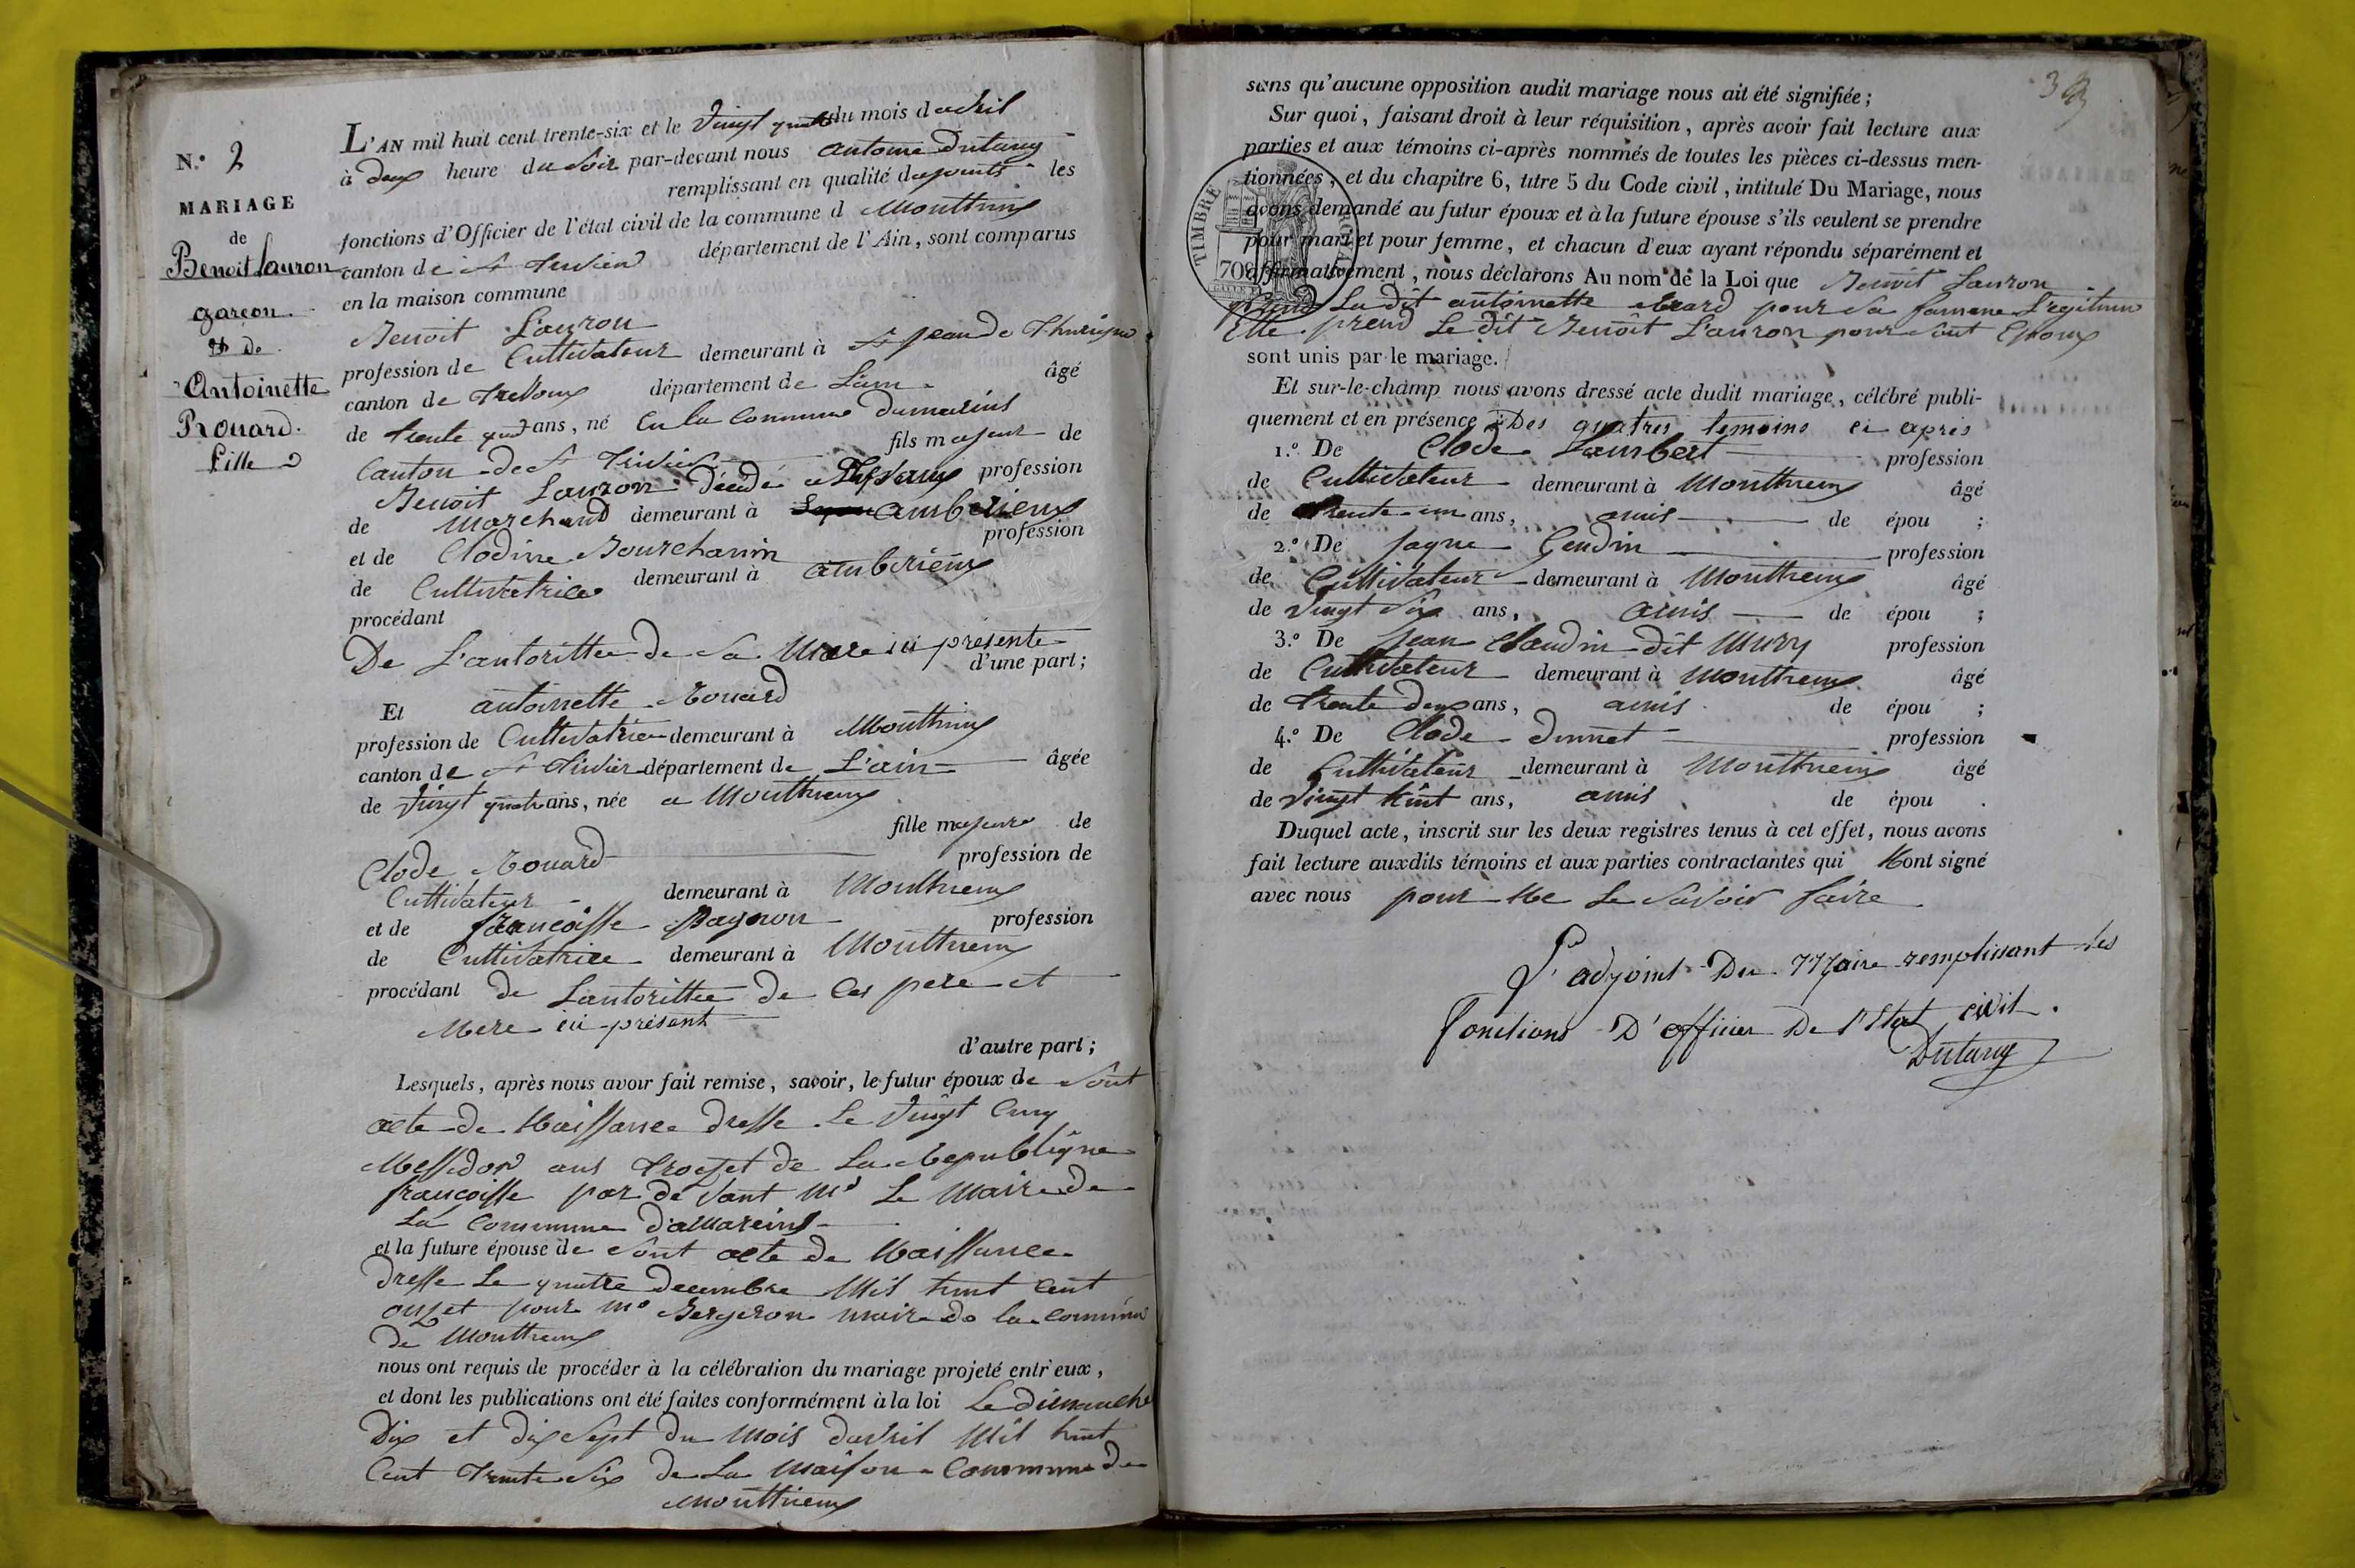 N.° 2
MARIAGE
de
Benoit Lauron
garcon.
et De
Antoinette
Rouard.
fille
L'AN mil huit cent trente-six et le vingt quatre du mois d avril
à deux heure du soir par-devant nous antoine Dutang
remplissant en qualité dajoints les
fonctions d'Officier de l'état civil de la commune d Monttrieux
canton de St Trivier département de l'Ain, sont comparus
en la maison commune
Benoit Lauron
profession de Cultivateur demeurant à St jean de Thurigneux
canton de Trevoux département de Lain âgé
de trente quatre ans, né en la Commune damareins
Canton de St Trivier fils majeur de
Benoit Lauron décédé a profession
de Marchand demeurant à amberieux
et de Clodine Bourchanin profession
de Cultivatrice demeurant à amberieux
procédant
De L'autorittee de sa Mere ici présente
d'une part;
Et antoinette Rouard
profession de Cultivatrice demeurant à Monttrieux
canton de St Trivier département de L'ain âgée
de vingt quatre ans, née a Monttrieux
fille majeure de
Clode Rouard profession de
Cultivateur demeurant à Monttrieux
et de francoisse Bagnon profession
de Cultivatrice demeurant à Monttrieux
procédant de Lautorittee de Ces pere et
Mere ici présent
d'autre part;
Lesquels, après nous avoir fait remise, savoir, le futur époux de Sont
acte de Naissance dresse Le vingt Cinq
Messidor ans de La Republique
francoisse par de vant Mr Le Maire de
La Commune d'amareins
et la future épouse de Sont acte de Naissance
dresse Le quatre decembre Mil huit Cent
onzet pour mr Bergeron maire de la Commune
de Monttrieux
nous ont requis de procéder à la célébration du mariage projeté entr'eux,
et dont les publications ont été faites conformément à la loi Le dimanche
Dix et dix Sept du Mois davril Mil huit
Cent Trente Six de La Maison Commune de
Monttrieux
sans qu'aucune opposition audit mariage nous ait été signifiée;
Sur quoi, faisant droit à leur réquisition, après avoir fait lecture aux
parties et aux témoins ci-après nommés de toutes les pièces ci-dessus men-
tionnées, et du chapitre 6, titre 5 du Code civil, intitulé Du Mariage, nous
avons demandé au futur époux et à la future épouse s'ils veulent se prendre
pour mari et pour femme, et chacun d'eux ayant répondu séparément et
affirmativement, nous déclarons Au nom de la Loi que Benoit Lauron
Prend La dit antoinette Rouard pour Sa famme Legitime
Elle prend Le dit Benoît Lauron pour Sont Epoux
sont unis par le mariage.
Et sur-le-champ nous avons dressé acte dudit mariage, célébré publi-
quement et en présence Des quatres temoins ci après
1.° De Clode Lambert profession
de Cultivateur demeurant à Monttrieux âgé
de trente un ans, amis de épou ;
2.° De Jaque Gendin profession
de Cultivateur demeurant à Monttrieux âgé
de vingt Six ans, amis de épou ;
3.° De jean Claudin dit Mury profession
de Cultivateur demeurant à Monttrieux âgé
de trente deux ans, amis de épou ;
4.° De Clode profession
de Cultivateur demeurant à Monttrieux âgé
de vingt huit ans, amis de épou .
Duquel acte, inscrit sur les deux registres tenus à cet effet, nous avons
fait lecture auxdits témoins et aux parties contractantes qui Nont signé
avec nous pour Ne Le Savoir faire
L'adjoint Du Maire remplissant les
fonctions D'officier De l'Etat civil.
Dutang
TIMBRE ROYAL
70c